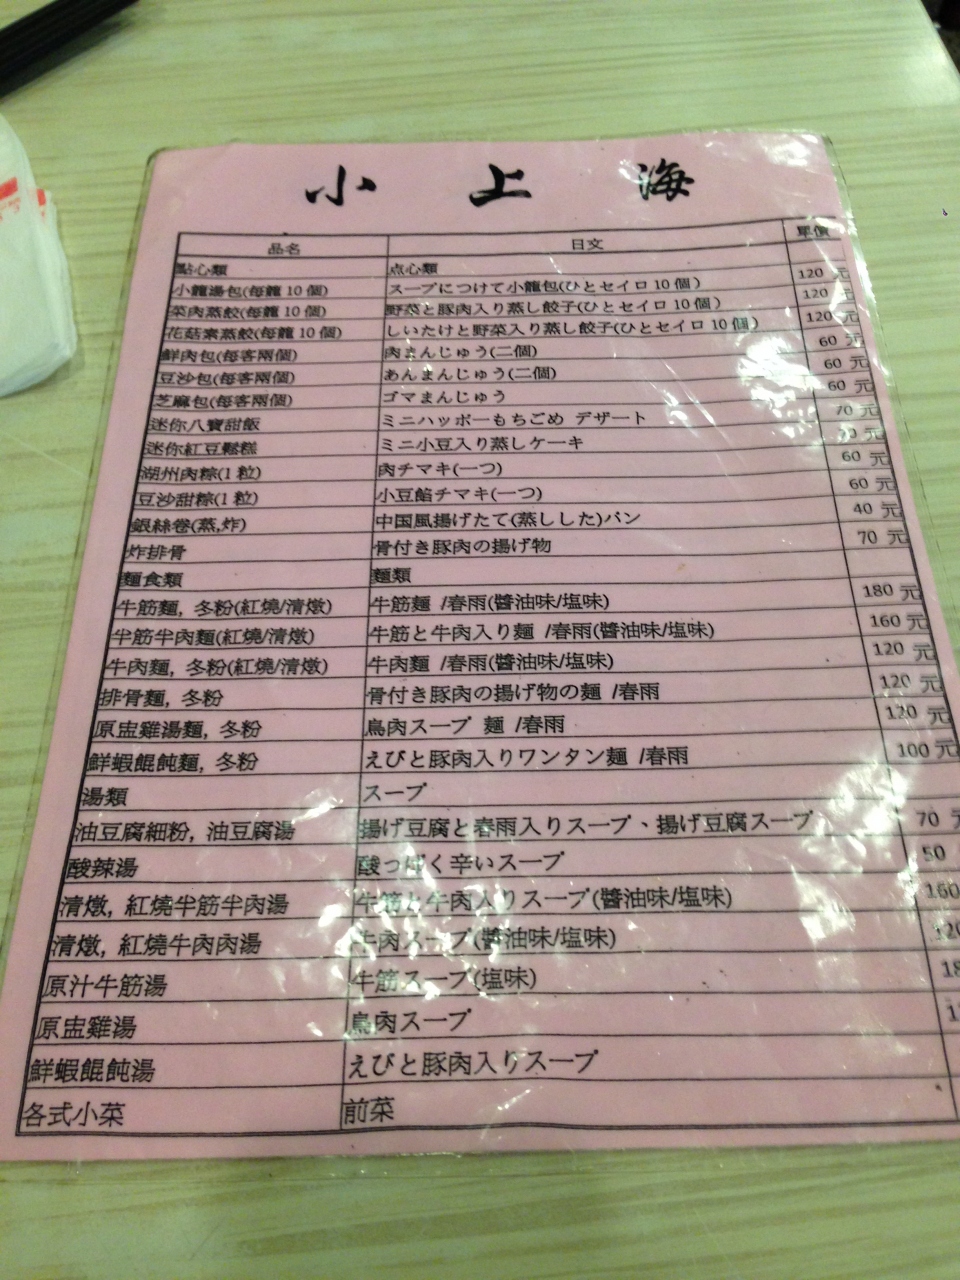 小上海
品名 日文 單價
點心類 点心類
小籠湯包(每籠 10 個) スープにつけて小籠包(ひとセイロ 10 個) 120 元
菜肉蒸餃(每籠 10 個) 野菜と豚肉入り蒸し餃子(ひとセイロ 10 個) 120 元
花菇素蒸餃(每籠 10 個) しいたけと野菜入り蒸し餃子(ひとセイロ 10 個) 120 元
鮮肉包(每客兩個) 肉まんじゅう(二個) 60 元
豆沙包(每客兩個) あんまんじゅう(二個) 60 元
芝麻包(每客兩個) ゴマまんじゅう 60 元
迷你八寶甜飯 ミニハッポーもちごめ デザート 70 元
迷你紅豆鬆糕 ミニ小豆入り蒸しケーキ 元
湖州肉粽(1 粒) 肉チマキ(一つ) 60 元
豆沙甜粽(1 粒) 小豆餡チマキ(一つ) 60 元
銀絲卷(蒸,炸) 中国風揚げたて(蒸しした)パン 40 元
炸排骨 骨付き豚肉の揚げ物 70 元
麵食類 麵類
牛筋麵, 冬粉(紅燒/清燉) 牛筋麵 /春雨(醬油味/塩味) 180 元
半筋半肉麵(紅燒/清燉) 牛筋と牛肉入り麵 /春雨(醬油味/塩味) 160 元
牛肉麵, 冬粉(紅燒/清燉) 牛肉麵 /春雨(醬油味/塩味) 120 元
排骨麵, 冬粉 骨付き豚肉の揚げ物の麵 /春雨 120 元
原盅雞湯麵, 冬粉 鳥肉スープ 麵 /春雨 120 元
鮮蝦餛飩麵, 冬粉 えびと豚肉入りワンタン麵 /春雨 100 元
湯類 スープ
油豆腐細粉, 油豆腐湯 揚げ豆腐と春雨入りスープ、揚げ豆腐スープ 70 元
酸辣湯 酸っぽく辛いスープ 50
清燉, 紅燒半筋半肉湯 牛筋と牛肉入りスープ(醬油味/塩味) 160
清燉, 紅燒牛肉肉湯 牛肉スープ(醬油味/塩味) 120
原汁牛筋湯 牛筋スープ(塩味) 18
原盅雞湯 鳥肉スープ
鮮蝦餛飩湯 えびと豚肉入りスープ
各式小菜 前菜